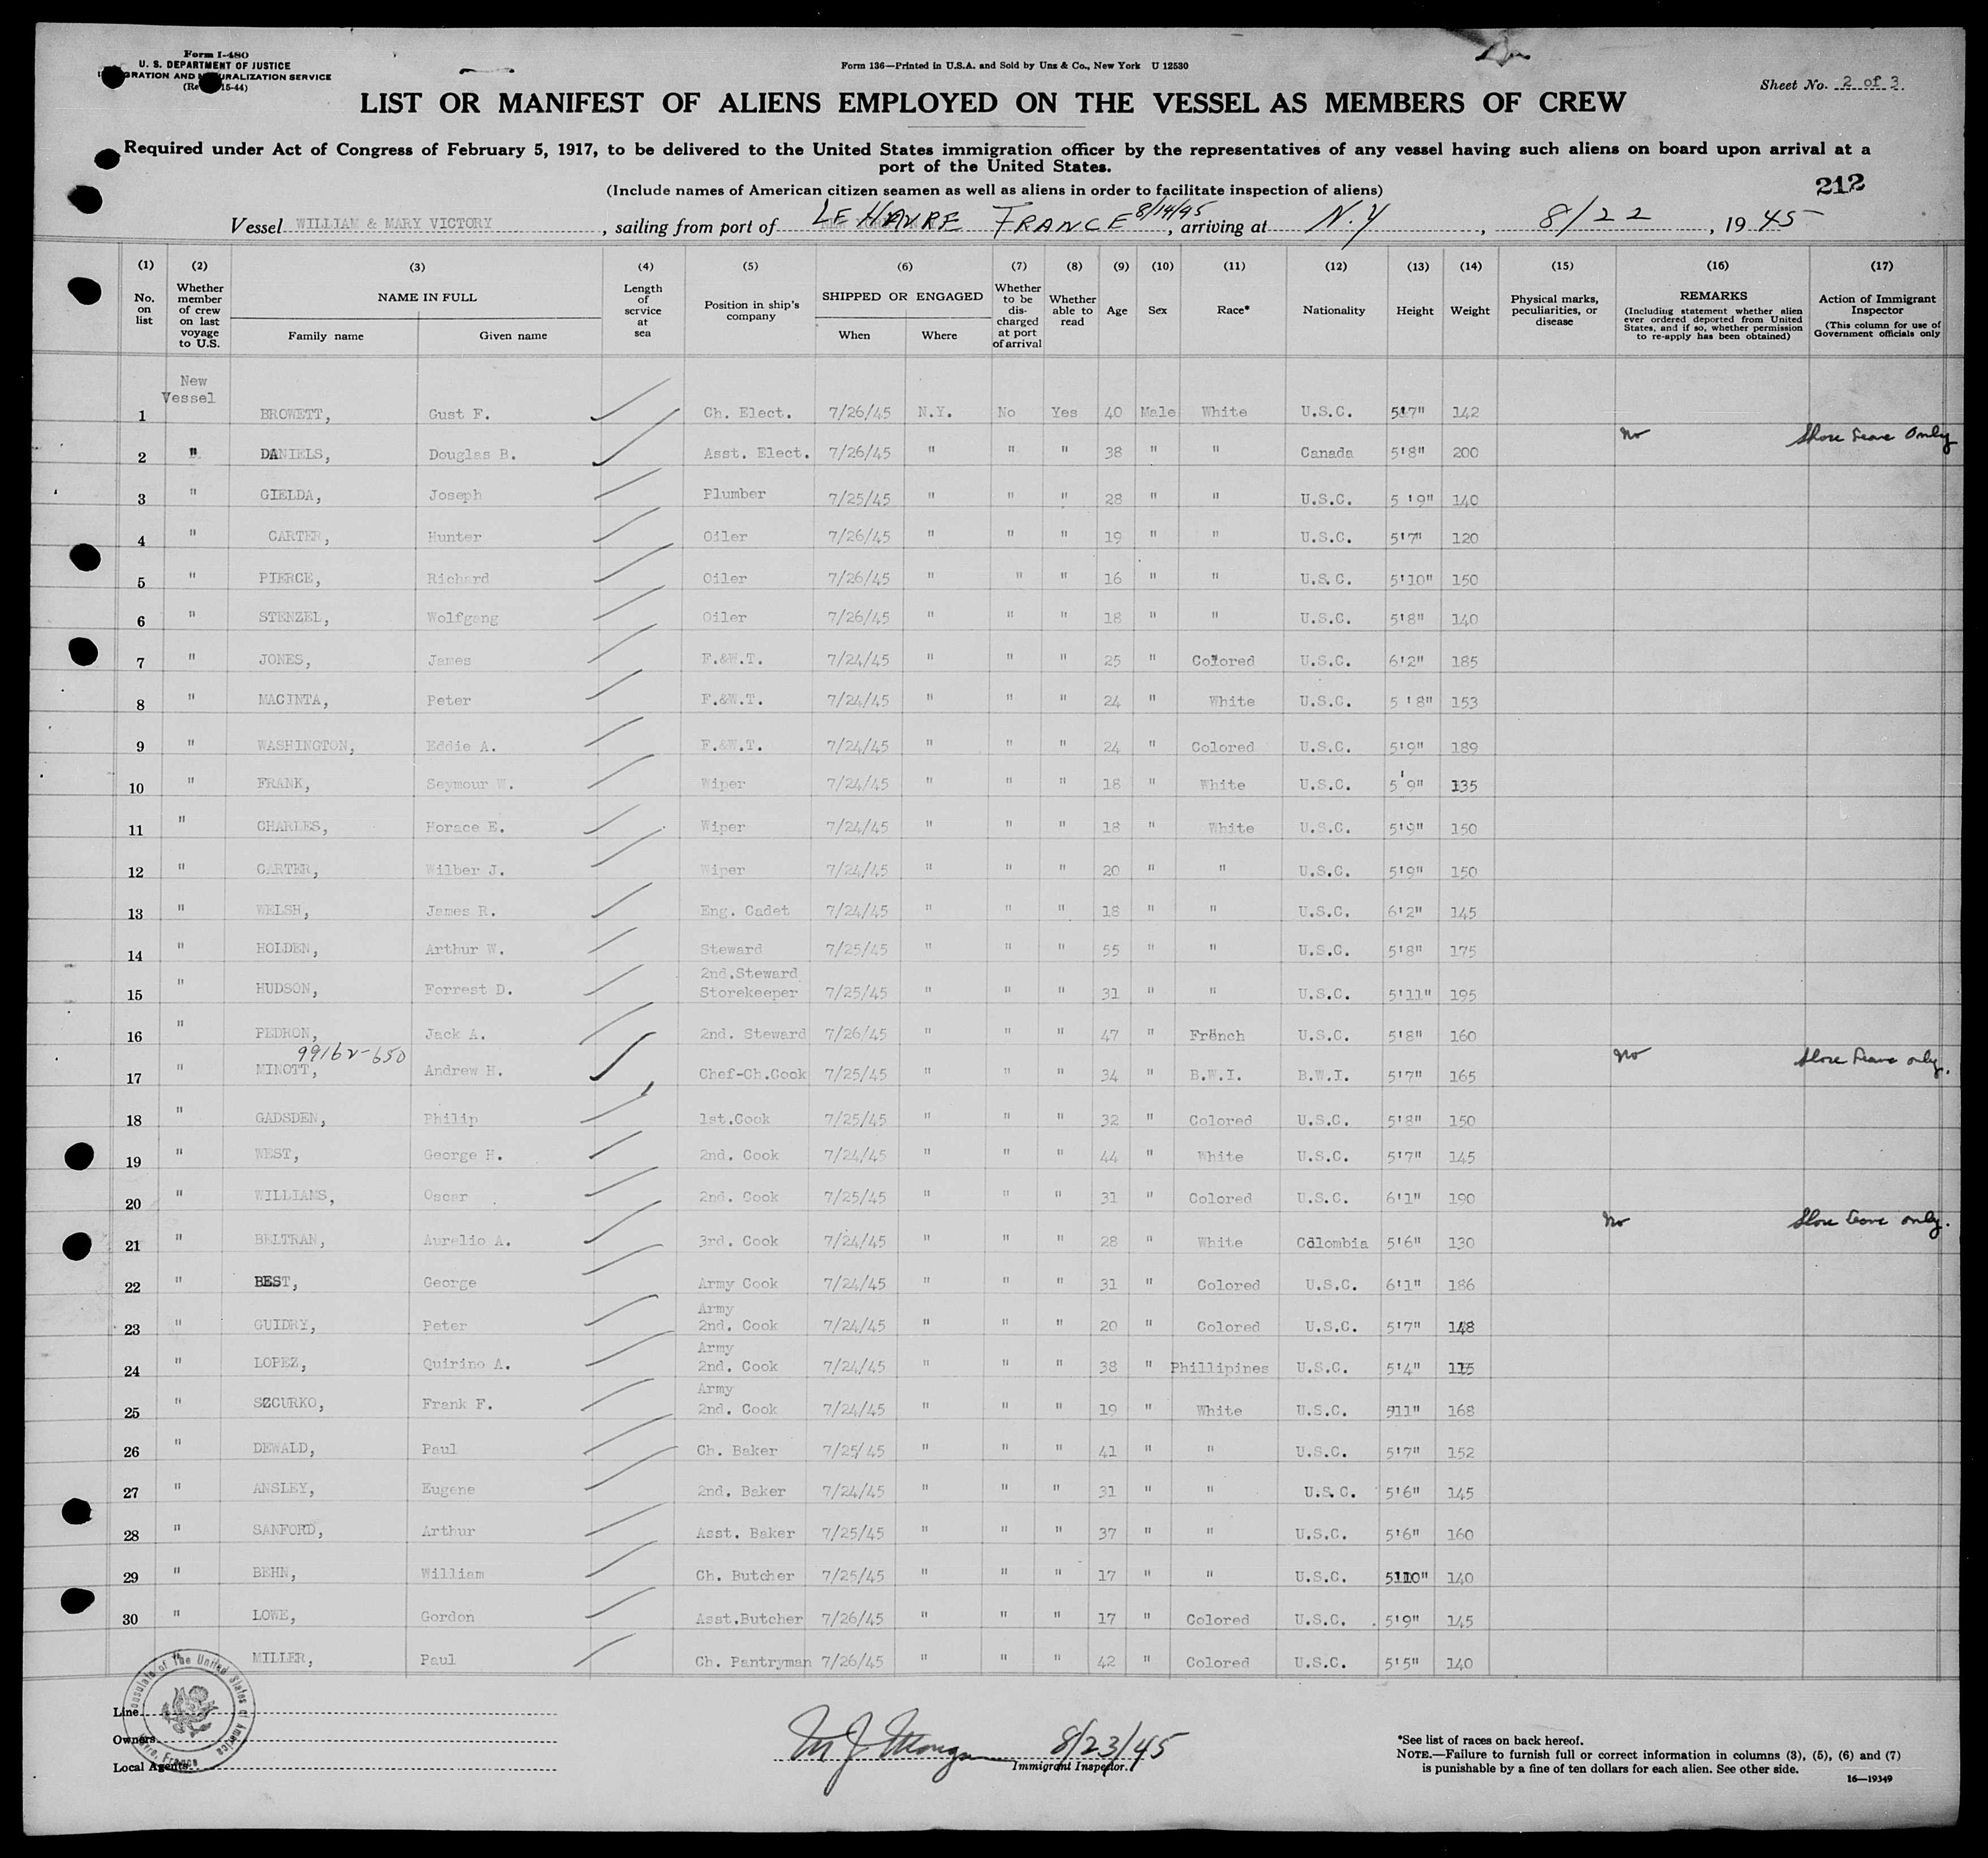 Form I-480
U. S. DEPARTMENT OF JUSTICE
IMMIGRATION AND NATURALIZATION SERVICE
15-44)
Form 136—Printed in U.S.A. and Sold by Unz & Co., New York U 12530
Sheet No. 2 of 3.
LIST OR MANIFEST OF ALIENS EMPLOYED ON THE VESSEL AS MEMBERS OF CREW
Required under Act of Congress of February 5, 1917, to be delivered to the United States immigration officer by the representatives of any vessel having such aliens on board upon arrival at a
port of the United States.
(Include names of American citizen seamen as well as aliens in order to facilitate inspection of aliens)
212
Vessel WILLIAM & MARY VICTORY, sailing from port of LE HAVRE FRANCE 8/14/45, arriving at N.Y, 8/22, 1945
(1) (2) (3) (4) (5) (6) (7) (8) (9) (10) (11) (12) (13) (14) (15) (16) (17)
No. on list Whether member of crew on last voyage to U.S. NAME IN FULL Family name Given name Length of service at sea Position in ship's company SHIPPED OR ENGAGED When Where Whether to be discharged at port of arrival Whether able to read Age Sex Race* Nationality Height Weight Physical marks, peculiarities, or disease REMARKS (Including statement whether alien ever ordered deported from United States, and if so, whether permission to re-apply has been obtained) Action of Immigrant Inspector (This column for use of Government officials only
New
Vessel
1 BROWETT, Gust F. Ch. Elect. 7/26/45 N.Y. No Yes 40 Male White U.S.C. 5'7" 142
2 " DANIELS, Douglas B. Asst. Elect. 7/26/45 " " " 38 " " Canada 5'8" 200 No Shore Leave Only
3 " GIELDA, Joseph Plumber 7/25/45 " " " 28 " " U.S.C. 5'9" 140
4 " CARTER, Hunter Oiler 7/26/45 " " " 19 " " U.S.C. 5'7" 120
5 " PIERCE, Richard Oiler 7/26/45 " " " 16 " " U.S.C. 5'10" 150
6 " STENZEL, Wolfgang Oiler 7/26/45 " " " 18 " " U.S.C. 5'8" 140
7 " JONES, James F.&W.T. 7/24/45 " " " 25 " Colored U.S.C. 6'2" 185
8 " MACINTA, Peter F.&W.T. 7/24/45 " " " 24 " White U.S.C. 5'8" 153
9 " WASHINGTON, Eddie A. F.&W.T. 7/24/45 " " " 24 " Colored U.S.C. 5'9" 189
10 " FRANK, Seymour W. Wiper 7/24/45 " " " 18 " White U.S.C. 5'9" 135
11 " CHARLES, Horace E. Wiper 7/24/45 " " " 18 " White U.S.C. 5'9" 150
12 " CARTER, Wilber J. Wiper 7/24/45 " " " 20 " " U.S.C. 5'9" 150
13 " WELSH, James R. Eng. Cadet 7/24/45 " " " 18 " " U.S.C. 6'2" 145
14 " HOLDEN, Arthur W. Steward 7/25/45 " " " 55 " " U.S.C. 5'8" 175
2nd.Steward
15 " HUDSON, Forrest D. Storekeeper 7/25/45 " " " 31 " " U.S.C. 5'11" 195
16 " PEDRON, Jack A. 2nd. Steward 7/26/45 " " " 47 " French U.S.C. 5'8" 160
99162-650
17 " MINOTT, Andrew H. Chef-Ch.Cook 7/25/45 " " " 34 " B.W.I. B.W.I. 5'7" 165 No Shore Leave only.
18 " GADSDEN, Philip 1st.Cook 7/25/45 " " " 32 " Colored U.S.C. 5'8" 150
19 " WEST, George H. 2nd. Cook 7/24/45 " " " 44 " White U.S.C. 5'7" 145
20 " WILLIAMS, Oscar 2nd. Cook 7/25/45 " " " 31 " Colored U.S.C. 6'1" 190
21 " BELTRAN, Aurelio A. 3rd. Cook 7/24/45 " " " 28 " White Colombia 5'6" 130 No Shore Leave only.
22 " BEST, George Army Cook 7/24/45 " " " 31 " Colored U.S.C. 6'1" 186
Army
23 " GUIDRY, Peter 2nd. Cook 7/24/45 " " " 20 " Colored U.S.C. 5'7" 148
Army
24 " LOPEZ, Quirino A. 2nd. Cook 7/24/45 " " " 38 " Phillipines U.S.C. 5'4" 115
Army
25 " SZCURKO, Frank F. 2nd. Cook 7/24/45 " " " 19 " White U.S.C. 511" 168
26 " DEWALD, Paul Ch. Baker 7/25/45 " " " 41 " " U.S.C. 5'7" 152
27 " ANSLEY, Eugene 2nd. Baker 7/24/45 " " " 31 " " U.S.C. 5'6" 145
28 " SANFORD, Arthur Asst. Baker 7/25/45 " " " 37 " " U.S.C. 5'6" 160
29 " BEHN, William Ch. Butcher 7/25/45 " " " 17 " " U.S.C. 5'10" 140
30 " LOWE, Gordon Asst.Butcher 7/26/45 " " " 17 " Colored U.S.C. 5'9" 145
MILLER, Paul Ch. Pantryman 7/26/45 " " " 42 " Colored U.S.C. 5'5" 140
Consulate of The United States of America
Havre, France
Line
Owners
Local Agents
8/23/45
Immigrant Inspector.
*See list of races on back hereof.
NOTE.—Failure to furnish full or correct information in columns (3), (5), (6) and (7)
is punishable by a fine of ten dollars for each alien. See other side.
16—19349